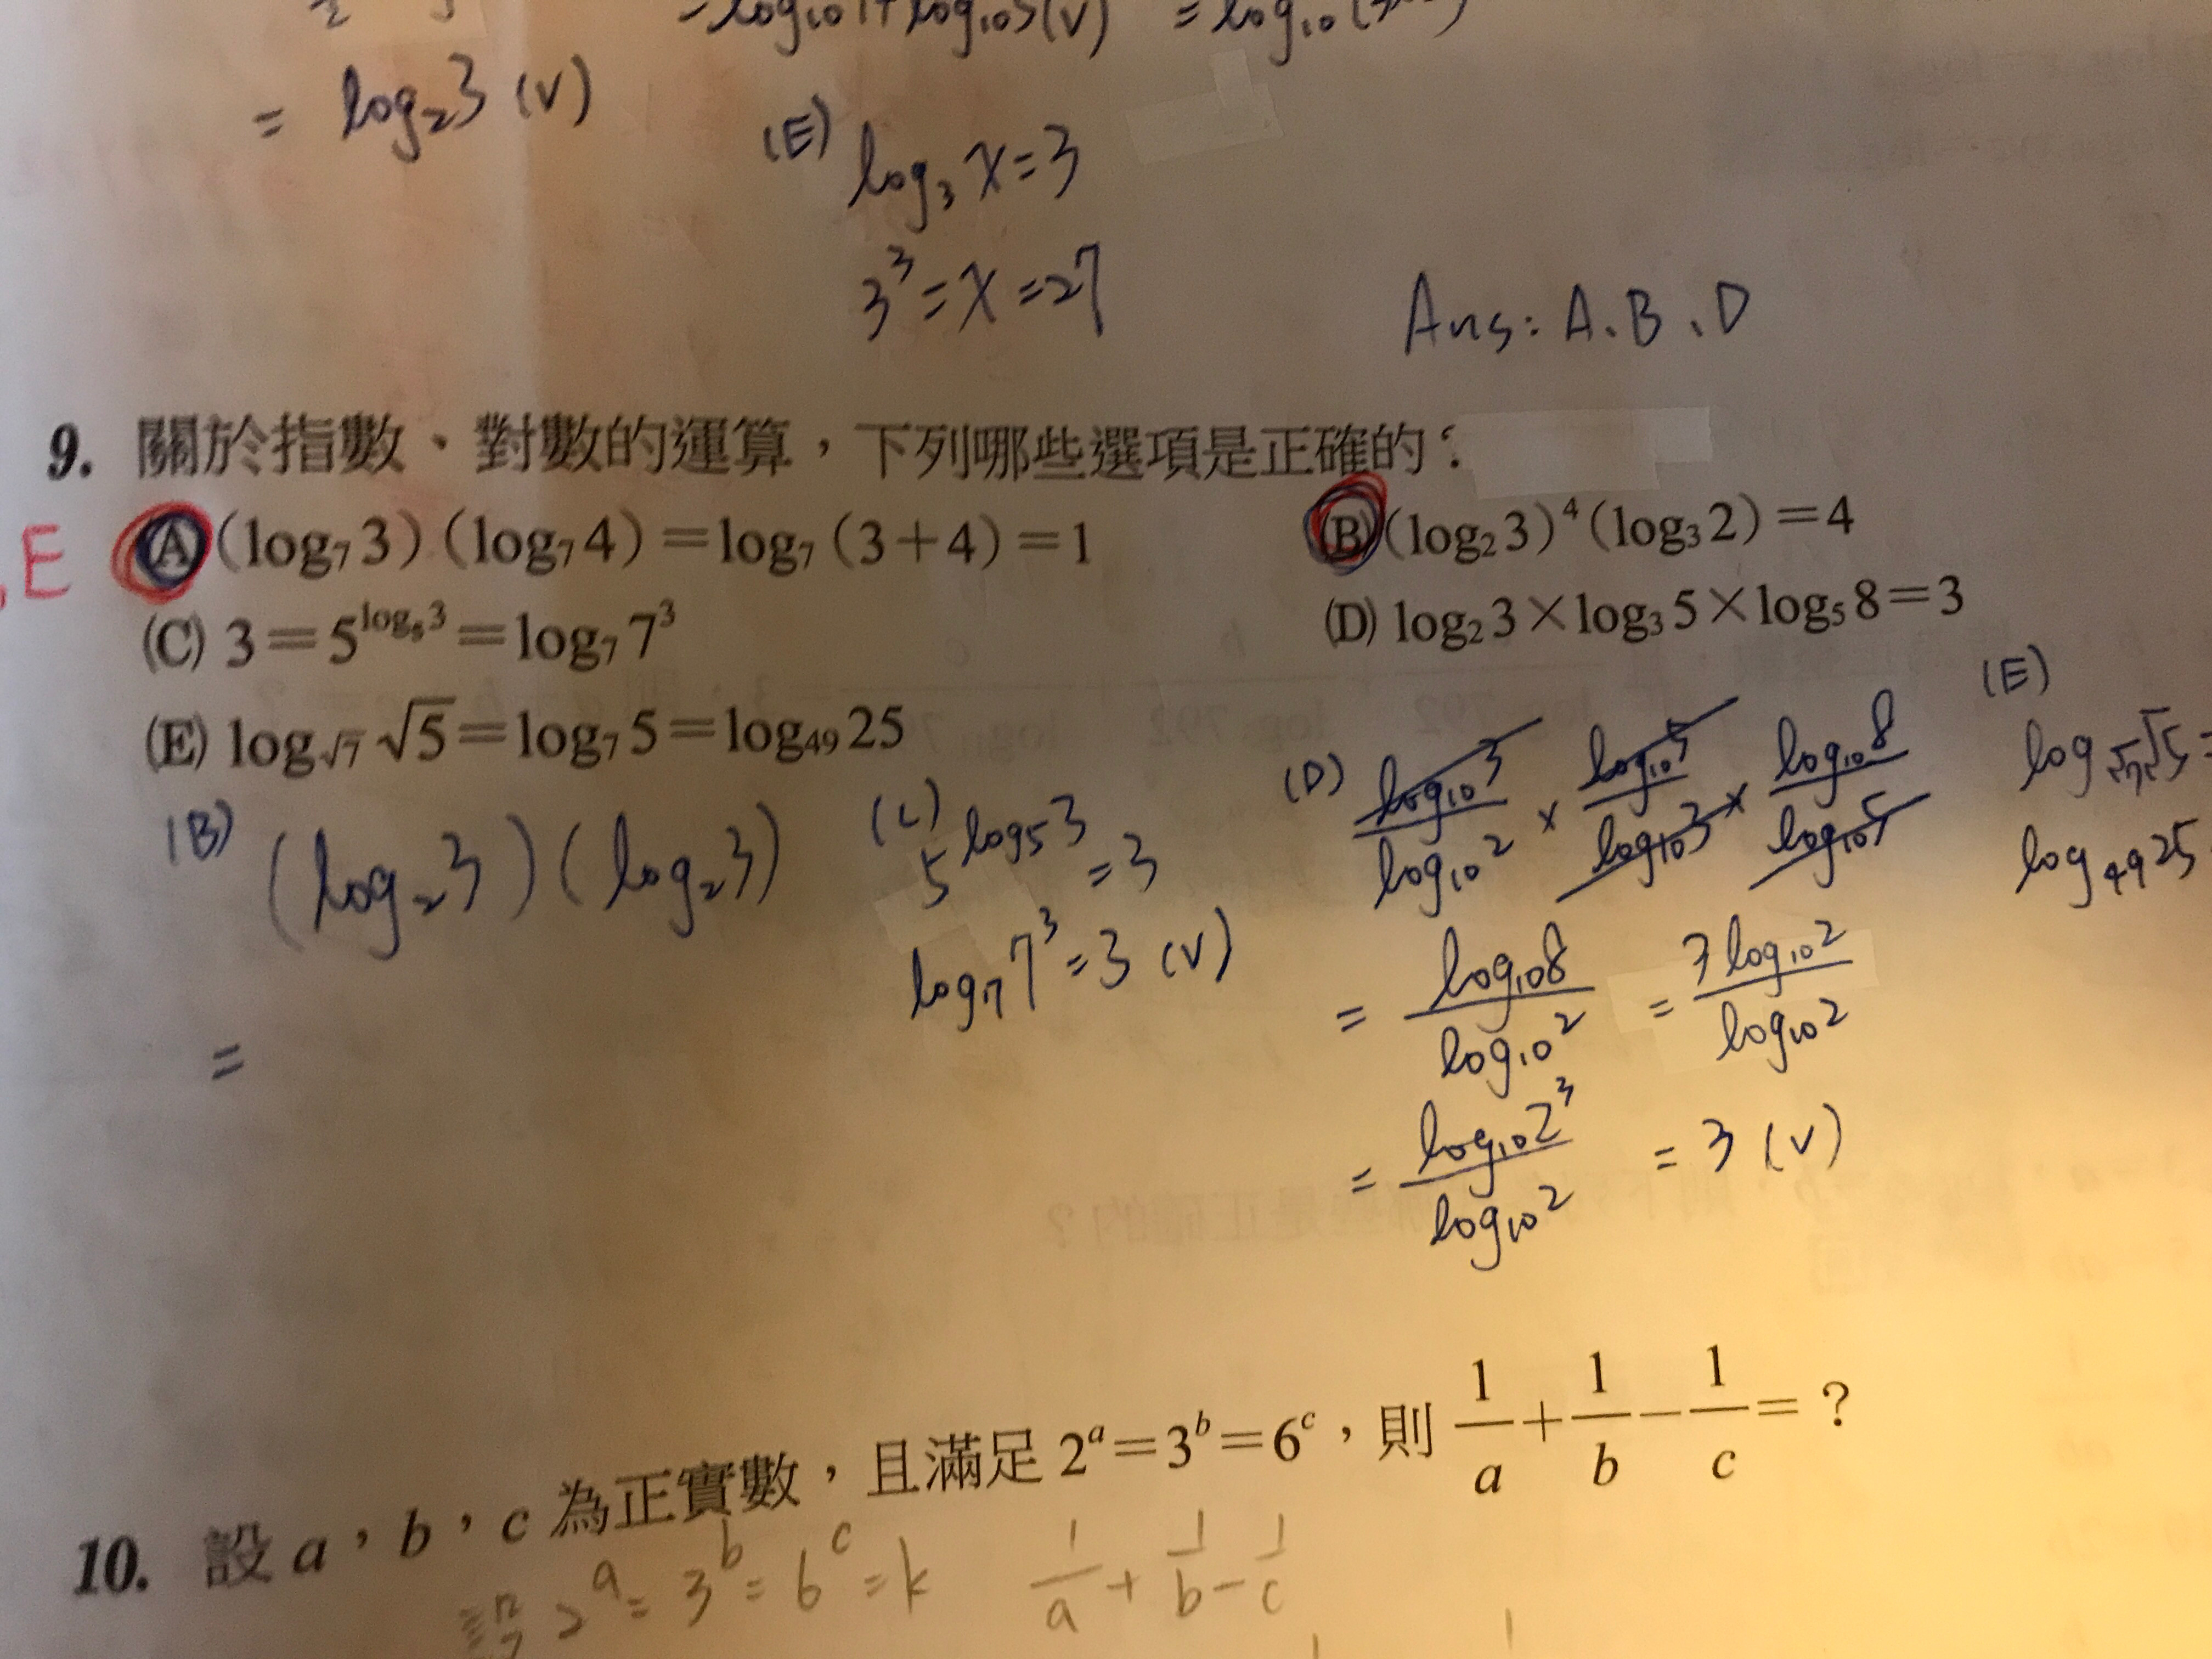 = log₂3 (V)
(E) log₃ x=3
3³=x=27
Ans: A、B、D
9. 關於指數、對數的運算，下列哪些選項是正確的？
E
(A) (log₇3)(log₇4)=log₇(3+4)=1
(B) (log₂3)⁴(log₃2)=4
(C) 3=5^{log₅3}=log₇7³
(D) log₂3×log₃5×log₅8=3
(E) log_{√7}√5=log₇5=log₄₉25
(B) (log₂3)(log₂3)
=
(C) 5^{log₅3}=3
log₇7³=3 (V)
(D) log₁₀3/log₁₀2 × log₁₀5/log₁₀3 × log₁₀8/log₁₀5
= log₁₀8/log₁₀2 = 3log₁₀2/log₁₀2
= log₁₀2³/log₁₀2 = 3 (V)
(E)
log_{√7}√5=
log₄₉25
10. 設 a，b，c 為正實數，且滿足 2ᵃ=3ᵇ=6ᶜ，則 1/a+1/b−1/c=？
設 2ᵃ=3ᵇ=6ᶜ=k 1/a+1/b−1/c